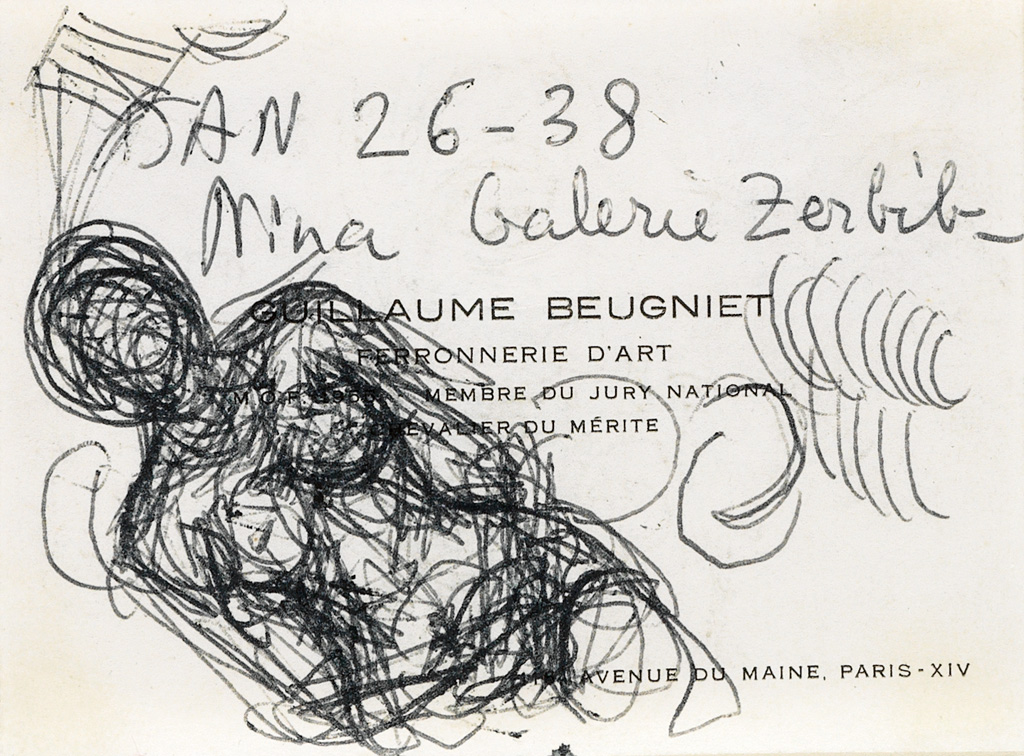 DAN 26-38
Nina Galerie Zerbib-
GUILLAUME BEUGNIET
FERRONNERIE D'ART
M.O.F. - MEMBRE DU JURY NATIONAL
CHEVALIER DU MÉRITE
AVENUE DU MAINE, PARIS-XIV